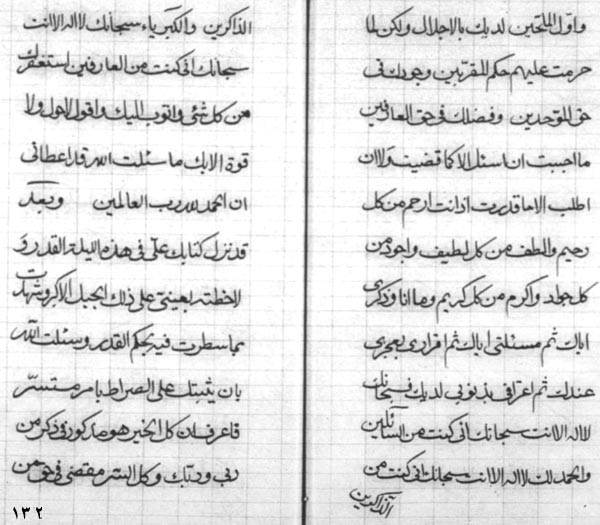 واوّل الملتجئين لديك بالاجلال ولكن لما
حرمت عليهم حكم المقربين وجودك فى
حق الموحدين وفضلك فى حق العارفين
ما احببت ان اسئل الا كما قضيت ولا ان
اطلب الا ما قدرت اذ انت ارحم من كل
رحيم والطف من كل لطيف واجود من
كل جواد واكرم من كل كريم وها انا ذكرى
اياك ثم مسئلتى اياك ثم اقرارى بعجزى
عندك ثم اعترافى بذنوبى لديك فسبحانك
لا اله الا انت سبحانك انى كنت من السائلين
والحمد لك لا اله الا انت سبحانك انى كنت من
الذاكرين
الذاكرين والكبرياء سبحانك لا اله الا انت
سبحانك انى كنت من العارفين استغفرك
من كل شئى واتوب اليك واقول لا حول ولا
قوة الا بك ما سئلت الله قد اعطانى
ان الحمد لله رب العالمين وبعد
قد نزل كتابك علىّ فى هذه الليلة القدر و
لاحظته بعينى على ذلك الجبل الاكبر وشهدت
بما سطرت فيه بحكم القدر وسئلت الله
بان يثبتك على الصراط بامر مستسرّ
فاعرف ان كل الخير هو مذكور فى ذكر من
ربى وربك وكل السر مقضى فى حق من
١٣٢